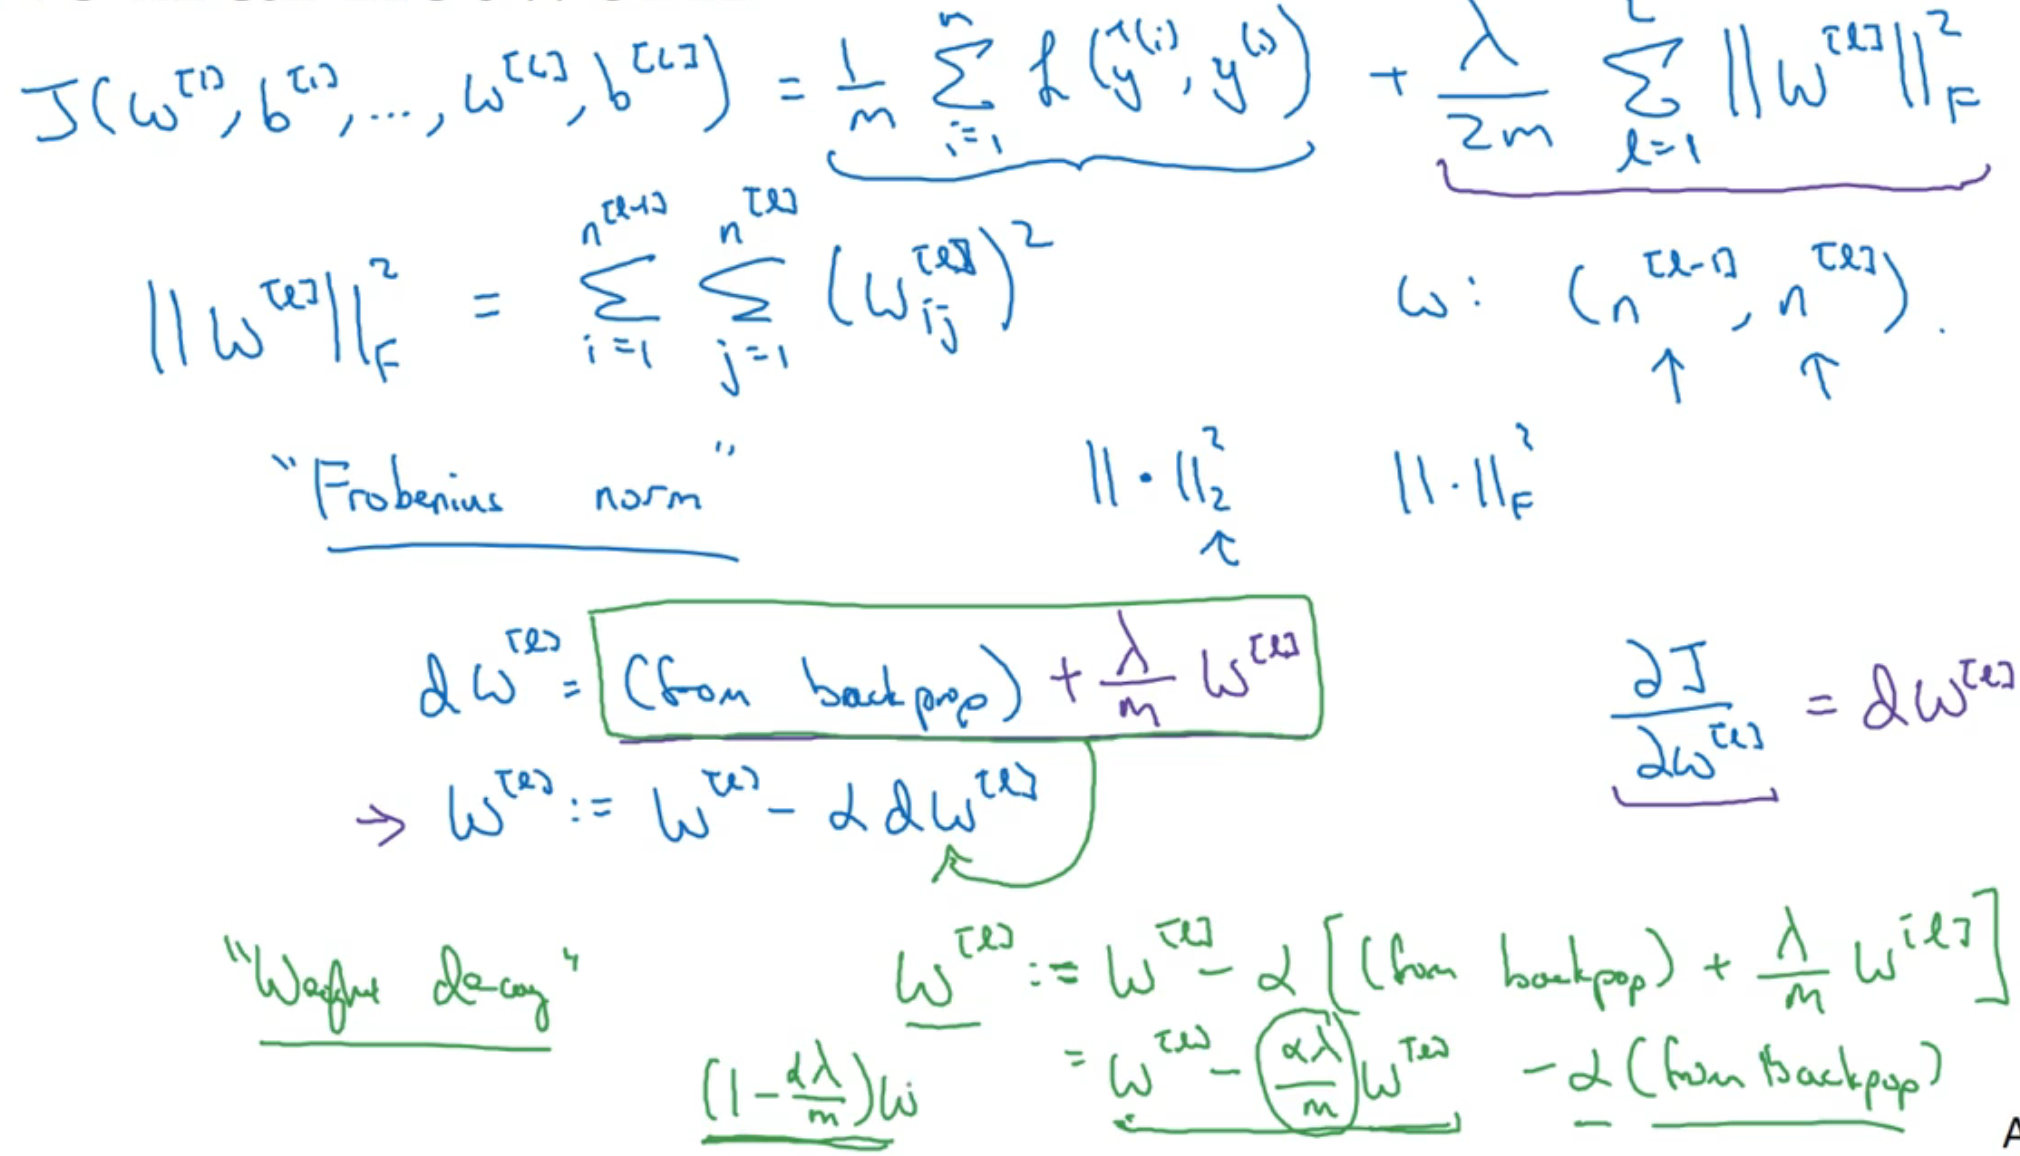 J(w^[1], b^[1], ..., w^[L], b^[L]) = 1/m Σ_{i=1}^{m} L(ŷ^(i), y^(i)) + λ/2m Σ_{l=1}^{L} ||w^[l]||_F^2
||w^[l]||_F^2 = Σ_{i=1}^{n^[l-1]} Σ_{j=1}^{n^[l]} (w_ij^[l])^2 w: (n^[l-1], n^[l]).
↑ ↑
"Frobenius norm" ||·||_2^2 ||·||_F^2
↑
dw^[l] = (from backprop) + λ/m w^[l] ∂J/∂w^[l] = dw^[l]
→ w^[l] := w^[l] - α dw^[l]
"Weight decay" w^[l] := w^[l] - α[(from backpop) + λ/m w^[l]]
(1 - αλ/m)w = w^[l] - αλ/m w^[l] - α(from backpop)